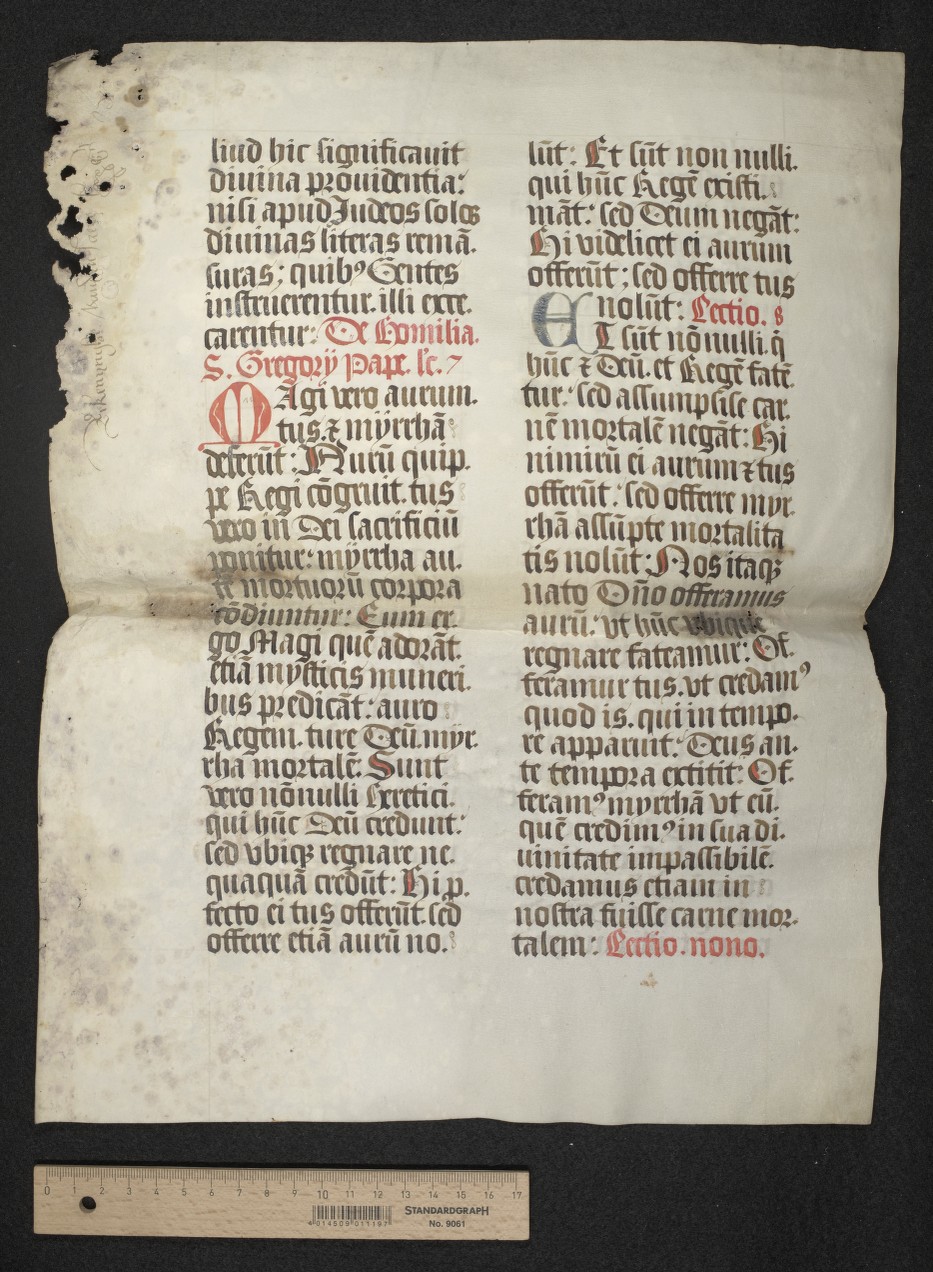 liud hic significauit
diuina prouidentia:
nisi apud Judeos solos
diuinas literas remā.
suras; quibꝰ Gentes
instruerentur. illi exce.
carentur: De Homilia.
S. Gregorÿ Pape. lc. 7
MAgi vero aurum.
tus. ⁊ mÿrrhā
deferūt: Aurū quip.
pe Regi cōgruit. tus
vero in Dei sacrificiū
ponitur: mÿrrha au.
tē mortuorū corpora
cōdiuntur: Eum er.
go Magi quē adorāt.
etiā mÿsticis muneri.
bus predicāt: auro
Regem. ture Deū. mÿr.
rha mortalē. Sunt
vero nōnulli Heretici.
qui hūc Deū credunt:
sed vbiqꝫ regnare ne.
quaquā credūt: Hi p.
fecto ei tus offerūt. sed
offerre etiā aurū no.
lūt: Et sūt non nulli.
qui hūc Regē existi.
māt: sed Deum negāt:
Hi videlicet ei aurum
offerūt; sed offerre tus
nolūt: Lectio. 8
ET sūt nōnulli. q̄
hūc ⁊ Deū. et Regē fatē
tur: sed assumpsisse car.
nē mortalē negāt: Hi
nimirū ei aurum ⁊ tus
offerūt: sed offerre mÿr.
rhā assūpte mortalita
tis nolūt: Nos itaqꝫ
nato Dn̄o offeramus
aurū: vt hūc vbique
regnare fateamur: Of.
feramur tus. vt credamꝰ
quod is. qui in tempo.
re apparuit: Deus an.
te tempora extitit: Of.
feramꝰ mÿrrhā vt eū.
quē credimꝰ in sua di.
uinitate impassibilē.
credamus etiam in
nostra fuisse carne mor.
talem: Lectio. nono.
0 1 2 3 4 5 6 7 8 9 10 11 12 13 14 15 16 17
4 014509 011197
STANDARDGRAPH
No. 9061